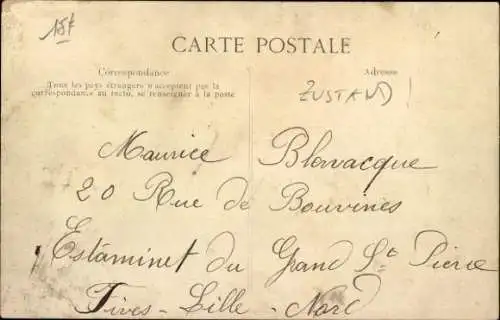 15f
CARTE POSTALE
Correspondance
Tous les pays étrangers n'acceptent pas la
correspondance au recto, se renseigner à la poste
Adresse
ZUSTAND!
Maurice Blonacque
20 Rue de Bouvines
Estaminet du Grand St Pierre
Fives-Lille-Nord